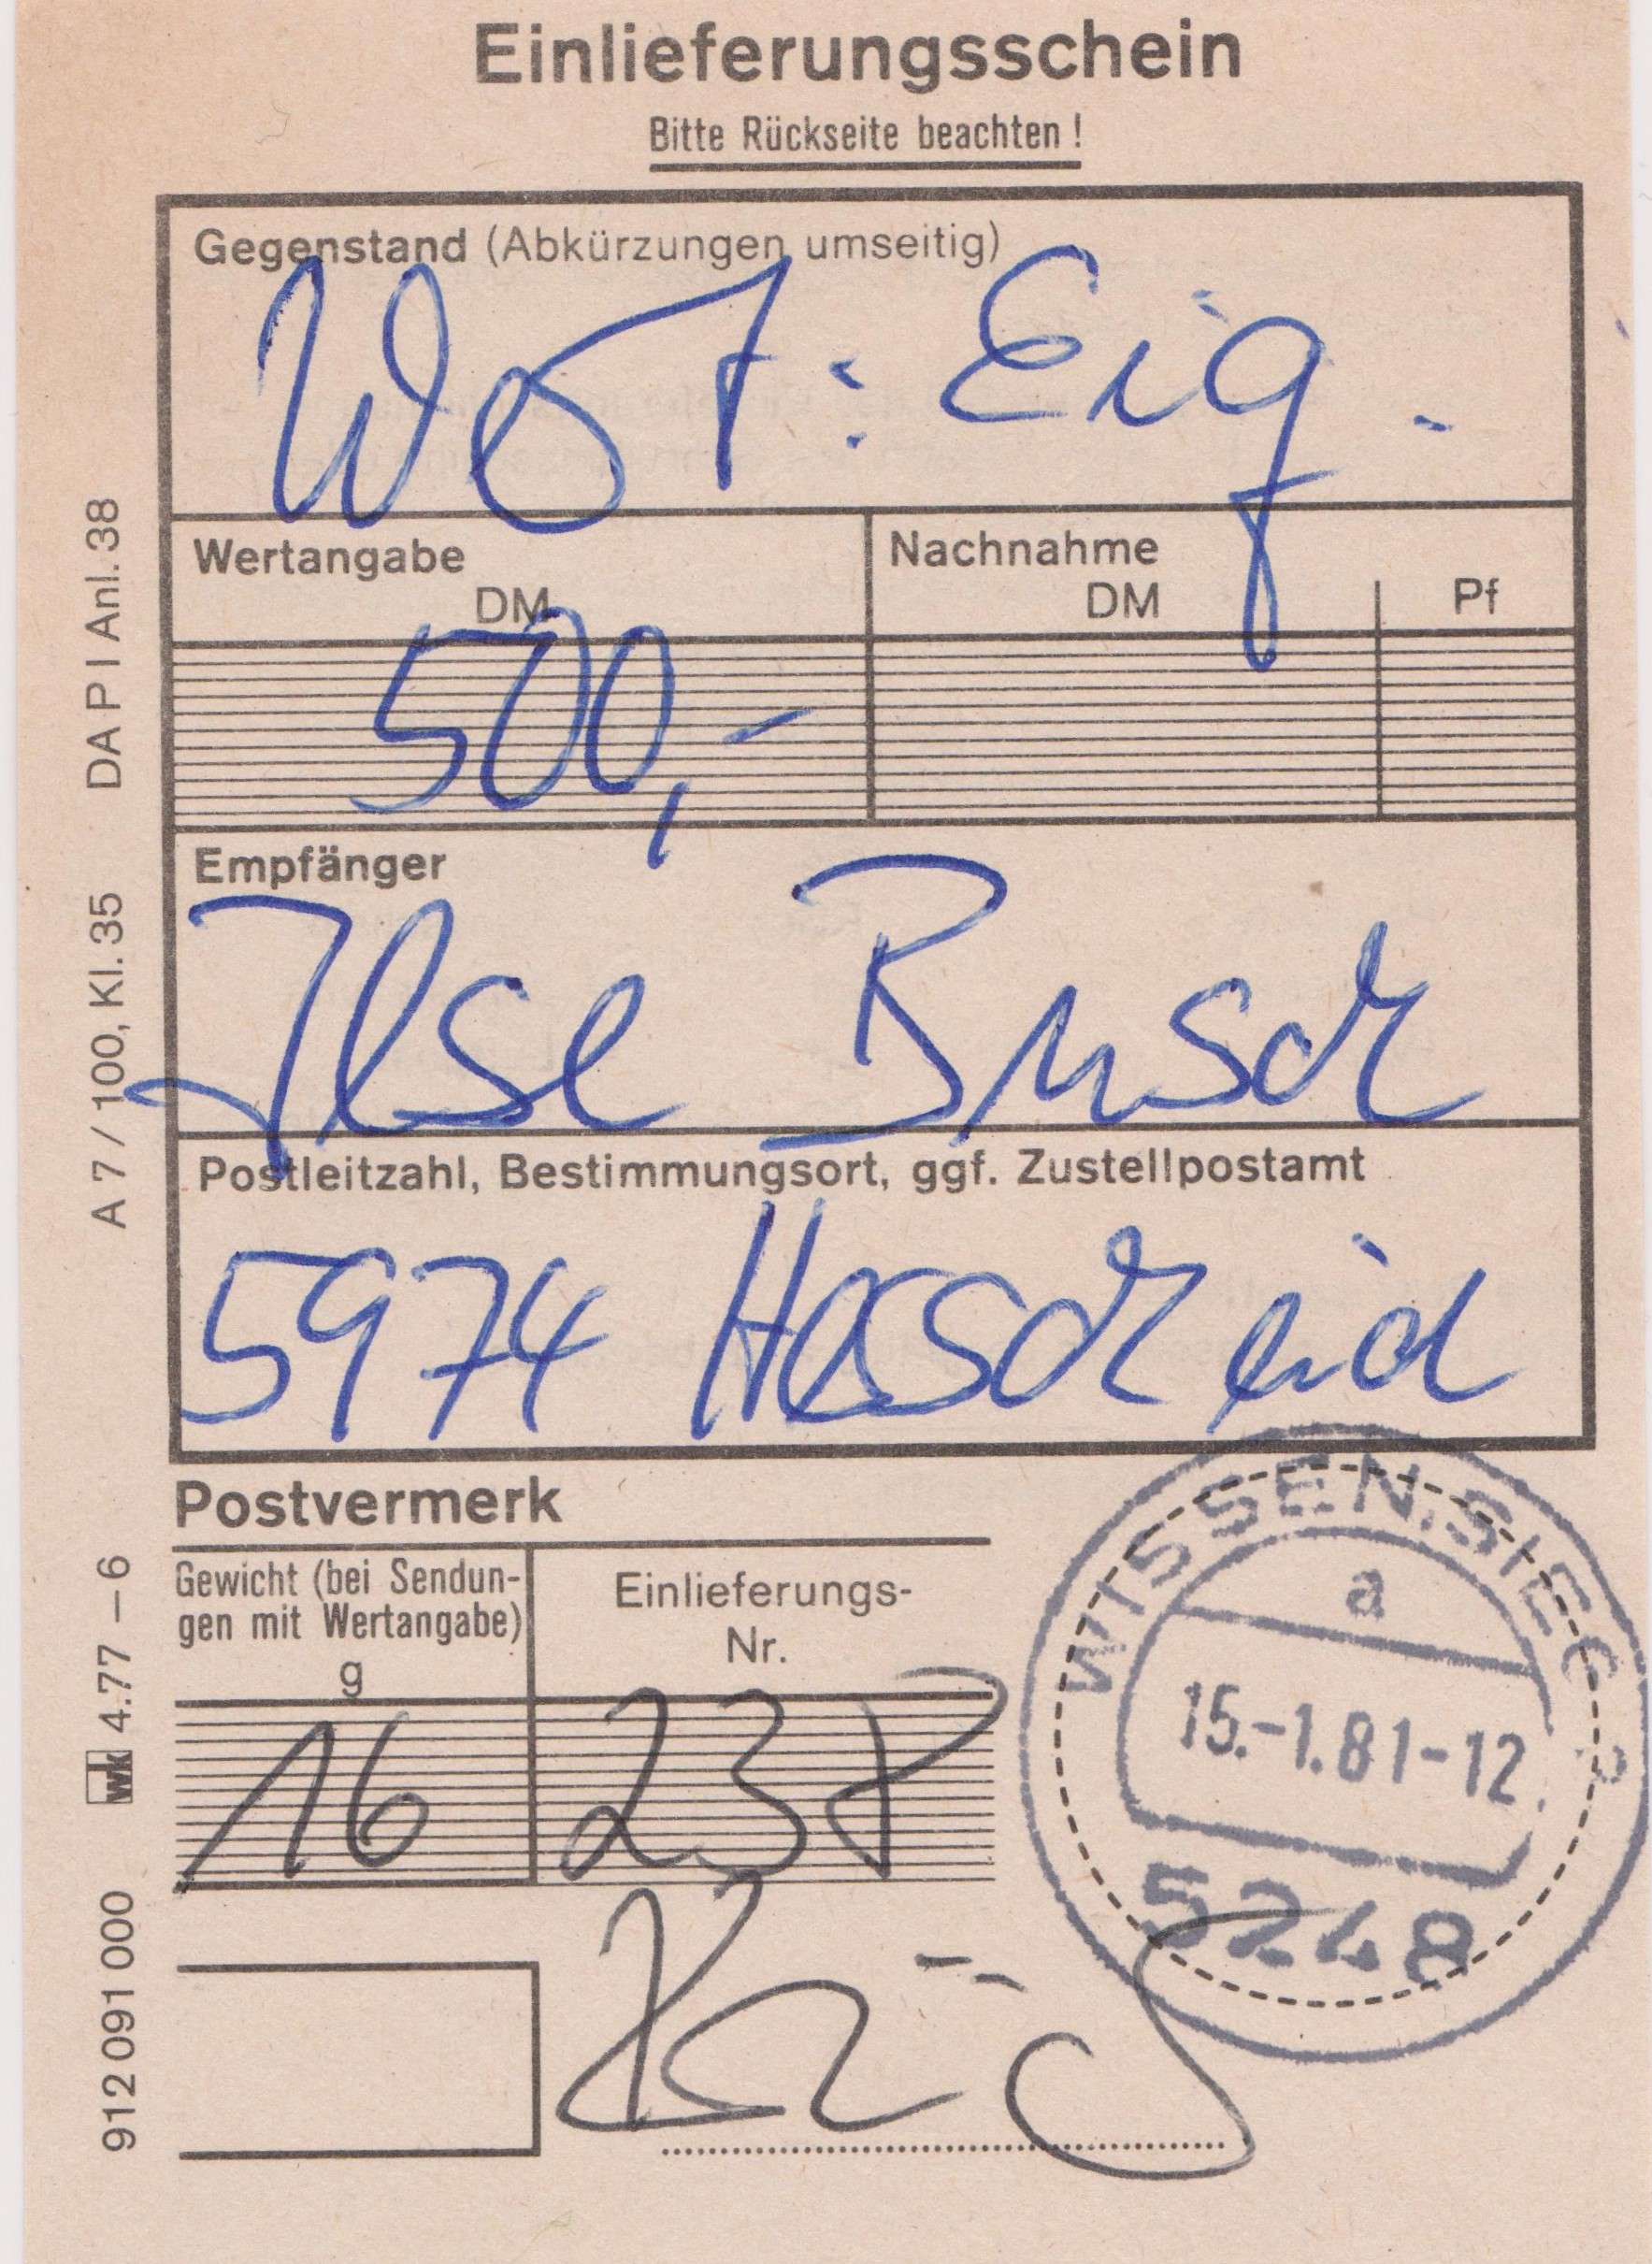 Einlieferungsschein
Bitte Rückseite beachten !
Gegenstand (Abkürzungen umseitig)
Wert: Eig.
Wertangabe
DM
Nachnahme
DM
Pf
500,-
Empfänger
Ilse Busch
Postleitzahl, Bestimmungsort, ggf. Zustellpostamt
5974 Herscheid
Postvermerk
Gewicht (bei Sendun-
gen mit Wertangabe)
g
Einlieferungs-
Nr.
16
WISSEN,SIEG
a
15.-1.81-12
5248
912 091 000 wk 4.77 – 6
A 7 / 100, Kl. 35 DA P I Anl. 38